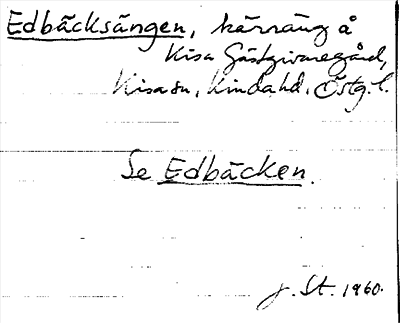 Edbäcksängen, kärräng å
Kisa Gästgivaregård,
Kisa sn, Kinda hd, Östg. l.
Se Edbäcken.
J. St. 1960.